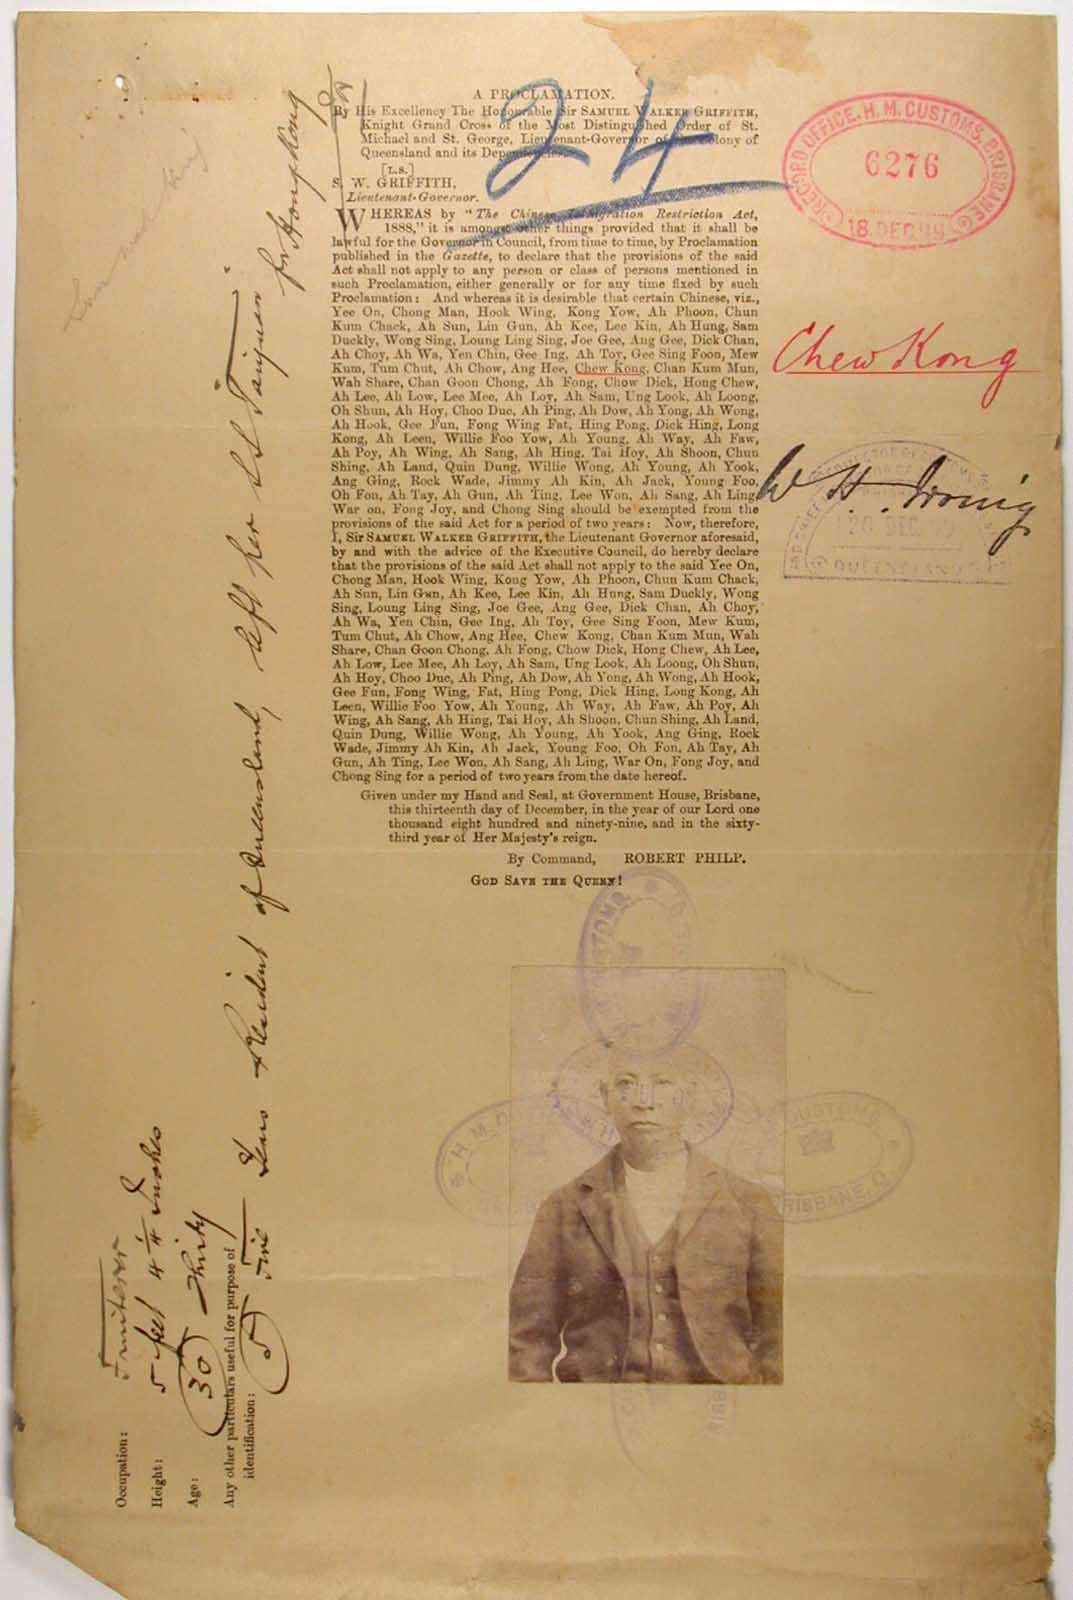 24
A PROCLAMATION.
By His Excellency The Honourable Sir SAMUEL WALKER GRIFFITH,
Knight Grand Cross of the Most Distinguished Order of St.
Michael and St. George, Lieutenant-Governor of the Colony of
Queensland and its Dependencies.
[L.S.]
S. W. GRIFFITH,
Lieutenant-Governor.
WHEREAS by "The Chinese Immigration Restriction Act,
1888," it is amongst other things provided that it shall be
lawful for the Governor in Council, from time to time, by Proclamation
published in the Gazette, to declare that the provisions of the said
Act shall not apply to any person or class of persons mentioned in
such Proclamation, either generally or for any time fixed by such
Proclamation: And whereas it is desirable that certain Chinese, viz.,
Yee On, Chong Man, Hook Wing, Kong Yow, Ah Phoon, Chun
Kum Chack, Ah Sun, Lin Gun, Ah Kee, Lee Kin, Ah Hung, Sam
Duckly, Wong Sing, Loung Ling Sing, Joe Gee, Ang Gee, Dick Chan,
Ah Choy, Ah Wa, Yen Chin, Gee Ing, Ah Toy, Gee Sing Foon, Mew
Kum, Tum Chut, Ah Chow, Ang Hee, Chew Kong, Chan Kum Mun,
Wah Share, Chan Goon Chong, Ah Fong, Chow Dick, Hong Chew,
Ah Lee, Ah Low, Lee Mee, Ah Loy, Ah Sam, Ung Look, Ah Loong,
Oh Shun, Ah Hoy, Choo Duc, Ah Ping, Ah Dow, Ah Yong, Ah Wong,
Ah Hook, Gee Fun, Fong Wing Fat, Hing Pong, Dick Hing, Long
Kong, Ah Leen, Willie Foo Yow, Ah Young, Ah Way, Ah Faw,
Ah Poy, Ah Wing, Ah Sang, Ah Hing, Tai Hoy, Ah Shoon, Chun
Shing, Ah Land, Quin Dung, Willie Wong, Ah Young, Ah Yook,
Ang Ging, Rock Wade, Jimmy Ah Kin, Ah Jack, Young Foo,
Oh Fon, Ah Tay, Ah Gun, Ah Ting, Lee Won, Ah Sang, Ah Ling
War on, Fong Joy, and Chong Sing should be exempted from the
provisions of the said Act for a period of two years: Now, therefore,
I, Sir SAMUEL WALKER GRIFFITH, the Lieutenant Governor aforesaid,
by and with the advice of the Executive Council, do hereby declare
that the provisions of the said Act shall not apply to the said Yee On,
Chong Man, Hook Wing, Kong Yow, Ah Phoon, Chun Kum Chack,
Ah Sun, Lin Gun, Ah Kee, Lee Kin, Ah Hung, Sam Duckly, Wong
Sing, Loung Ling Sing, Joe Gee, Ang Gee, Dick Chan, Ah Choy,
Ah Wa, Yen Chin, Gee Ing, Ah Toy, Gee Sing Foon, Mew Kum,
Tum Chut, Ah Chow, Ang Hee, Chew Kong, Chan Kum Mun, Wah
Share, Chan Goon Chong, Ah Fong, Chow Dick, Hong Chew, Ah Lee,
Ah Low, Lee Mee, Ah Loy, Ah Sam, Ung Look, Ah Loong, Oh Shun,
Ah Hoy, Choo Duc, Ah Ping, Ah Dow, Ah Yong, Ah Wong, Ah Hook,
Gee Fun, Fong Wing, Fat, Hing Pong, Dick Hing, Long Kong, Ah
Leen, Willie Foo Yow, Ah Young, Ah Way, Ah Faw, Ah Poy, Ah
Wing, Ah Sang, Ah Hing, Tai Hoy, Ah Shoon, Chun Shing, Ah Land,
Quin Dung, Willie Wong, Ah Young, Ah Yook, Ang Ging, Rock
Wade, Jimmy Ah Kin, Ah Jack, Young Foo, Oh Fon, Ah Tay, Ah
Gun, Ah Ting, Lee Won, Ah Sang, Ah Ling, War On, Fong Joy, and
Chong Sing for a period of two years from the date hereof.
Given under my Hand and Seal, at Government House, Brisbane,
this thirteenth day of December, in the year of our Lord one
thousand eight hundred and ninety-nine, and in the sixty-
third year of Her Majesty's reign.
By Command, ROBERT PHILP.
GOD SAVE THE QUEEN!
RECORD OFFICE. H. M. CUSTOMS, BRISBANE
6276
18 DEC 99
Chew Kong
W. H. Irving
20 DEC 99
QUEENSLAND
H. M. CUSTOMS
BRISBANE, Q.
Occupation: Fruiterer
Height: 5 feet 4 1/4 Inches
Age: (30) Thirty
Any other particulars useful for purpose of
identification: (5) Five Years Resident of Queensland, left per S S Taiyuan
for Hongkong